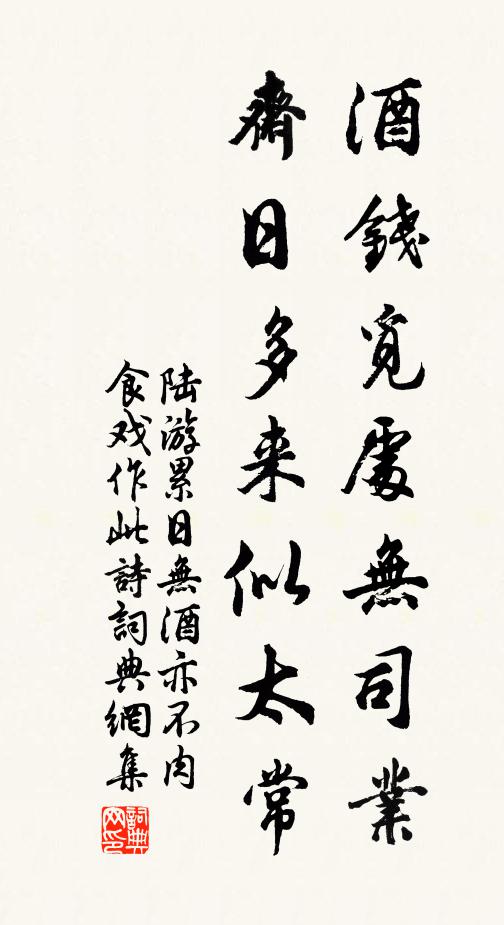 酒錢覓處無司業
齋日多来似太常
陆游累日無酒亦不肉
食戏作此詩詞典網集
詞典網印